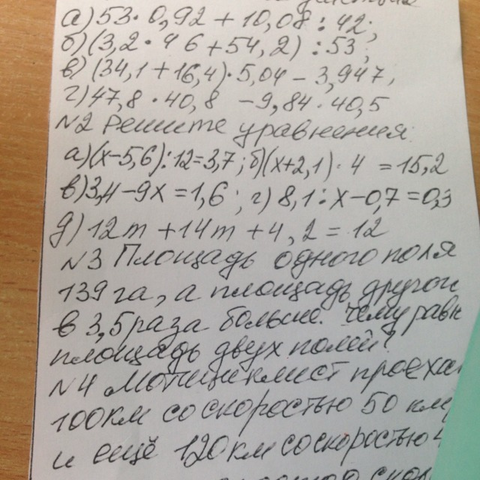 а) 53 · 0,92 + 10,08 : 42;
б) (3,2 · 46 + 54,2) : 53;
в) (34,1 + 16,4) · 5,04 – 3,947;
г) 47,8 · 40,8 – 9,84 · 40,5
N2 Решите уравнения:
а) (х – 5,6) : 12 = 3,7; б) (х + 2,1) · 4 = 15,2
в) 3,4 – 9х = 1,6; г) 8,1 : х – 0,7 = 0,
д) 12m + 14m + 4,2 = 12
N3 Площадь одного поля
139 га, а площадь другого
в 3,5 раза больше. Чему равн
площадь двух полей?
N4 Мотоциклист проехал
100км со скоростью 50 км
и ещё 120км со скоростью 4